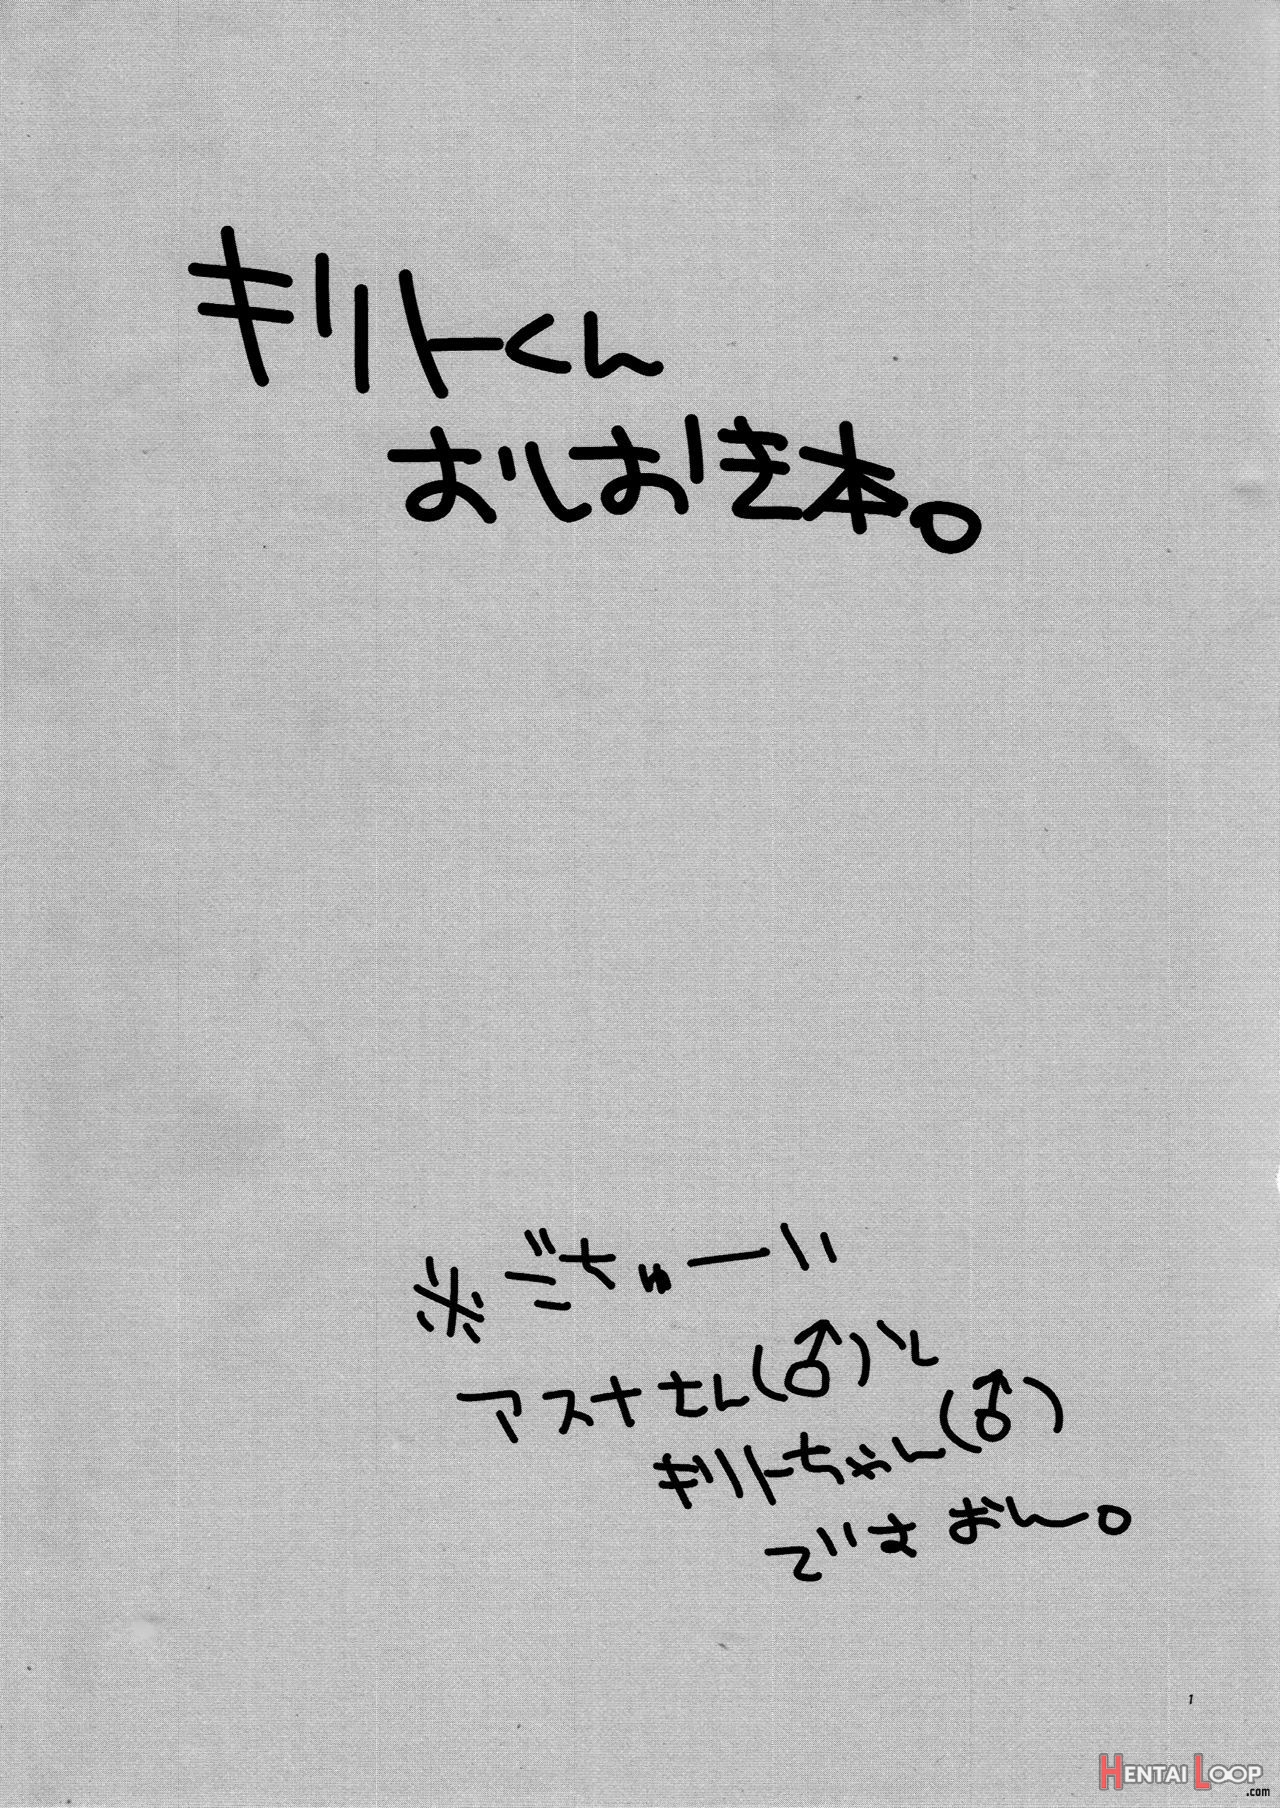 キリトくん
おしおき本。
※ごちゅーい
アスナさん(♂)と
キリトちゃん(♂)
でさおん。
1
HENTAI LOOP
.com